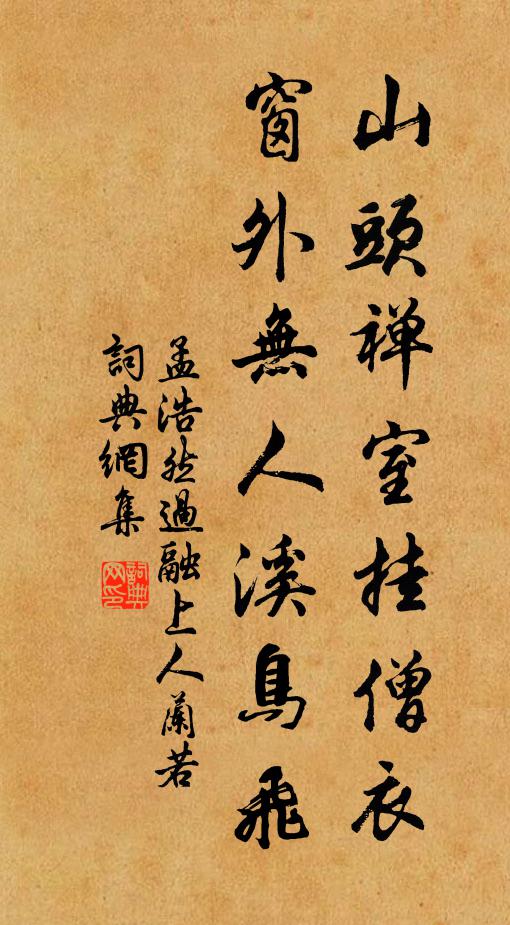 山頭禅室挂僧衣
窗外無人溪鳥飛
孟浩然過融上人蘭若
詞典網集
詞典网印